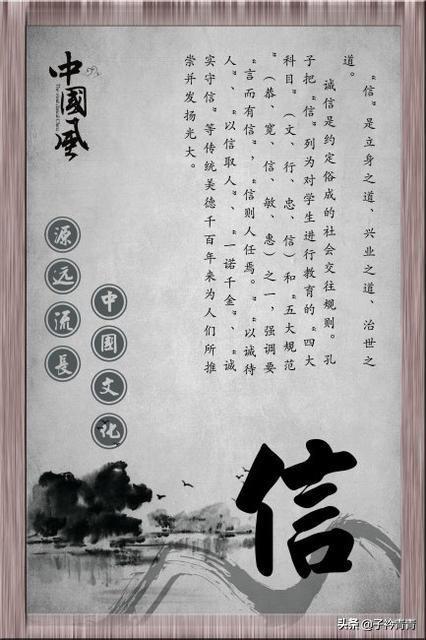 “信”是立身之道、兴业之道、治世之
道。
诚信是约定俗成的社会交往规则。孔
子把“信”列为对学生进行教育的“四大
科目”（文、行、忠、信）和“五大规范
”（恭、宽、信、敏、惠）之一，强调要
“言而有信”，“信则人任焉。”“以诚待
人”、“以信取人”、“一诺千金”、“诚
实守信”等传统美德千百年来为人们所推
崇并发扬光大。
中國風
中國文化
源远流長
信
头条@子衿青青